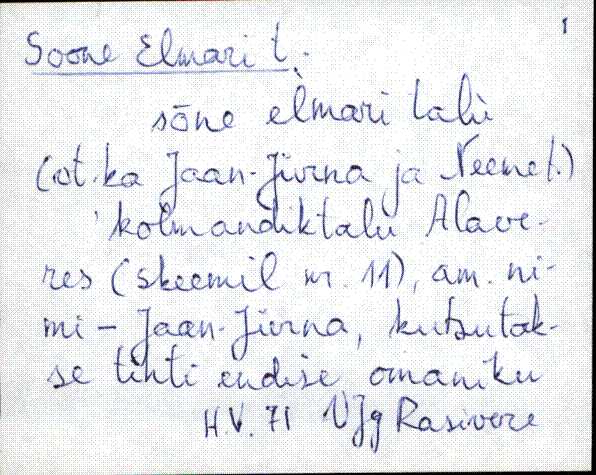 1
Soone Elmari t.
sōne elmari talù
(vt. ka Jaan-Jürna ja Neemet.)
'kolmandiktalù Alave-
res (skeemil nr. 11), am. ni-
mi - Jaan-Jürna, kutsutak-
se tihti endise omaniku
H.V. 71 VJg Rasivere